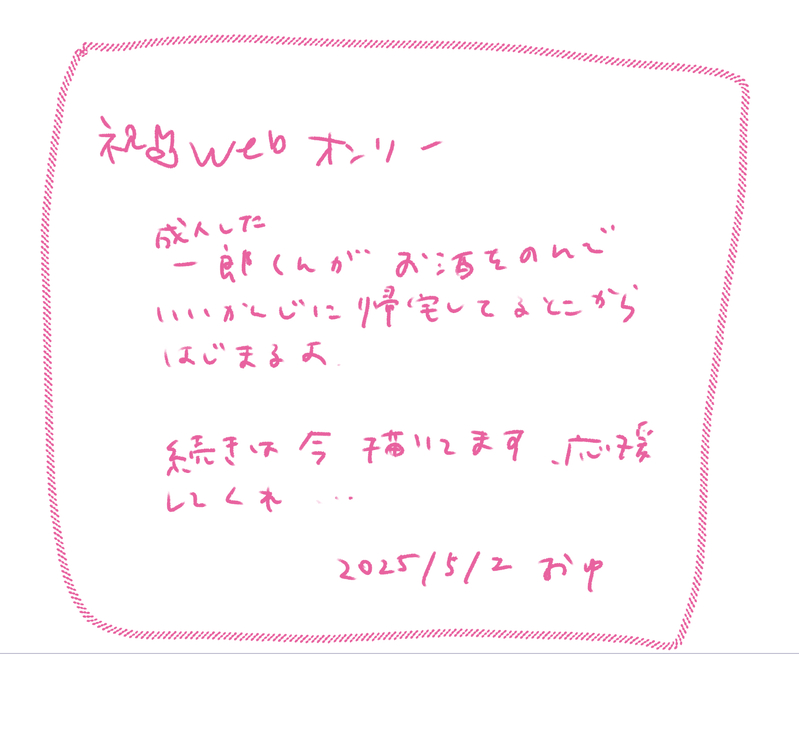 祝 Webオンリー
成人した
一郎くんがお酒をのんで
いいかんじに帰宅してるとこから
はじまるよ
続きは今描いてます、応援
してくれ…
2025/5/2 おゆ